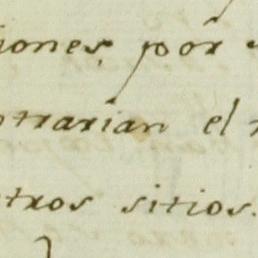 iones, pór
ntrarían el
otros sitios.